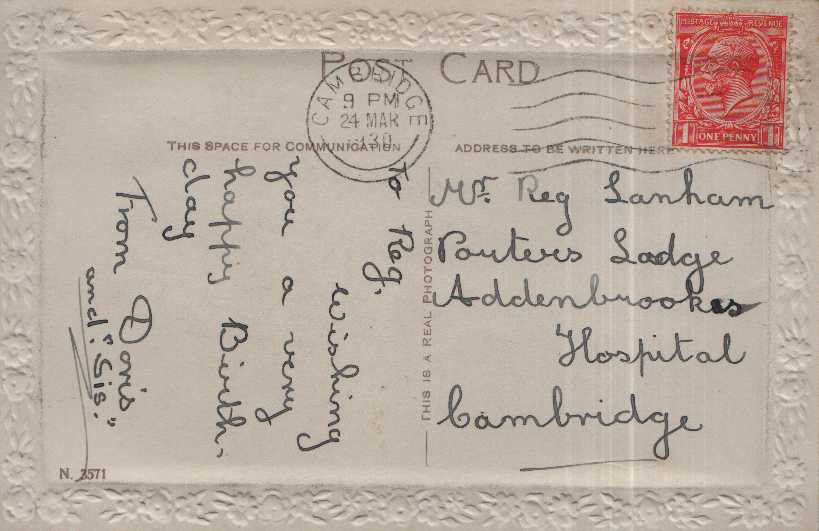 POST CARD
CAMBRIDGE
9 PM
24 MAR
30
POSTAGE REVENUE
1 ONE PENNY 1
THIS SPACE FOR COMMUNICATION
ADDRESS TO BE WRITTEN HERE
To Reg.
Wishing
you a very
happy Birth-
day
From Doris
and "Sis."
THIS IS A REAL PHOTOGRAPH
Mr. Reg Lanham
Porters Lodge
Addenbrookes
Hospital
Cambridge
N. 3571